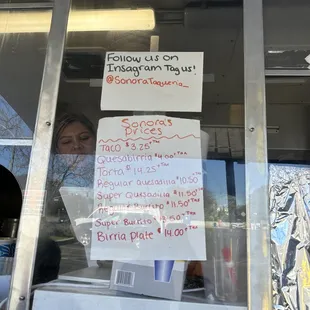 Follow us on
Instagram Tag us!
@SonoraTaqueria_
Sonora's
Prices
Taco $3.25 +Tax
Quesabirria $4.00 +Tax
Torta $14.25 +Tax
Regular Quesadilla $10.50 +Tax
Super Quesadilla $11.50 +Tax
Regular Burrito $11.50 +Tax
Super Burrito $13.50 +Tax
Birria Plate $14.00 +Tax